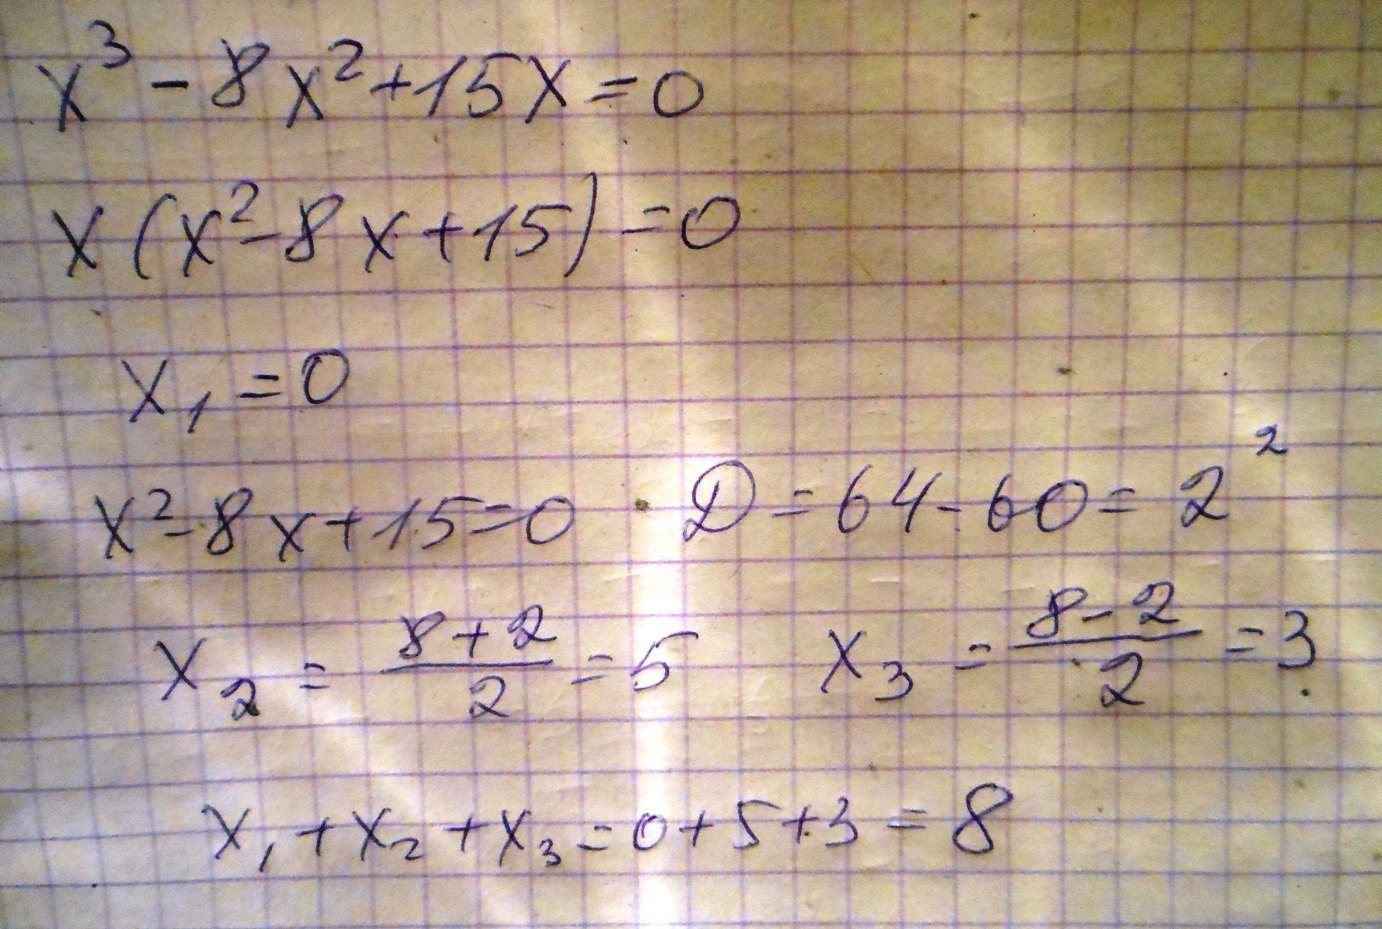 x³ - 8x² + 15x = 0
x(x² - 8x + 15) = 0
x₁ = 0
x² - 8x + 15 = 0 D = 64 - 60 = 2²
x₂ = (8 + 2)/2 = 5 x₃ = (8 - 2)/2 = 3
x₁ + x₂ + x₃ = 0 + 5 + 3 = 8